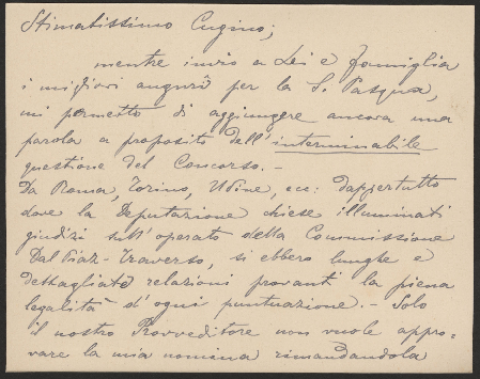 Stimatissimo Cugino;
mentre invio a Lei e famiglia
i migliori auguri per la S. Pasqua,
mi permetto di aggiungere ancora una
parola a proposito dell'interminabile
questione del Concorso. -
Da Roma, Torino, Udine, ecc: dappertutto
dove la Deputazione chiese illuminati
giudizi sull'operato della Commissione
Dal Piaz-Traverso, si ebbero lunghe e
dettagliate relazioni provanti la piena
legalità d'ogni puntuazione. - Solo
il nostro Provveditore non vuole appro-
vare la mia nomina rimandandola